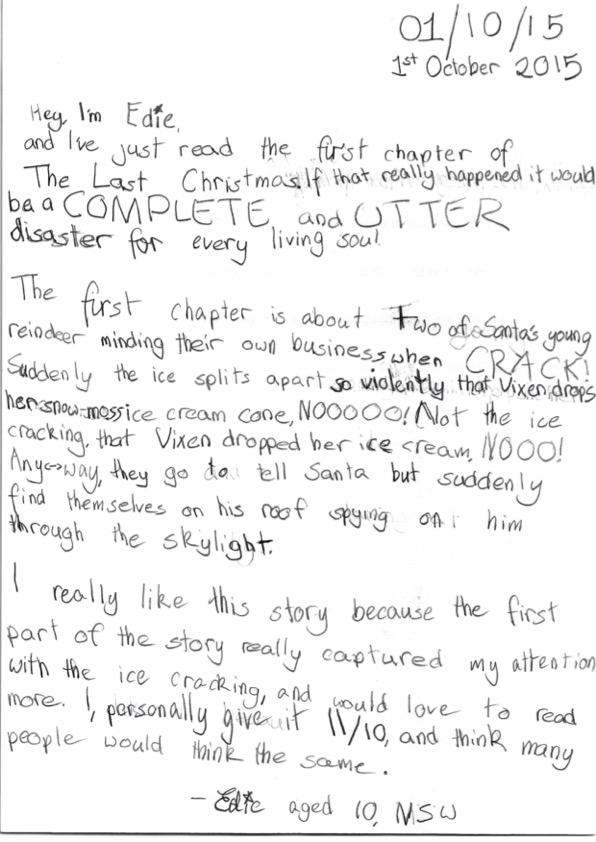 01/10/15
1st October 2015
Hey, I'm Edie,
and I've just read the first chapter of
The Last Christmas. If that really happened it would
be a COMPLETE and UTTER
disaster for every living soul.
The first chapter is about Two of Santa's young
reindeer minding their own business when CRACK!
Suddenly the ice splits apart so violently that Vixen drops
her snow-moss ice cream cone, NOOOOO! Not the ice
cracking, that Vixen dropped her ice cream, NOOO!
Any-way, they go to tell Santa but suddenly
find themselves on his roof spying on him
through the skylight.
I really like this story because the first
part of the story really captured my attention
with the ice cracking, and would love to read
more. I, personally give it 11/10, and think many
people would think the same.
- Edie aged 10, MSW